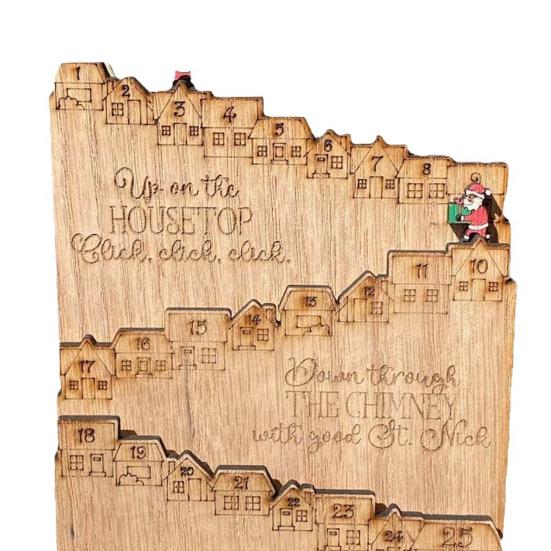 1 2 3 4 5 6 7 8
Up on the
HOUSETOP
Click, click, click,
17 16 15 14 13 12 11 10
Down through
THE CHIMNEY
with good St. Nick
18 19 20 21 22 23 24 25